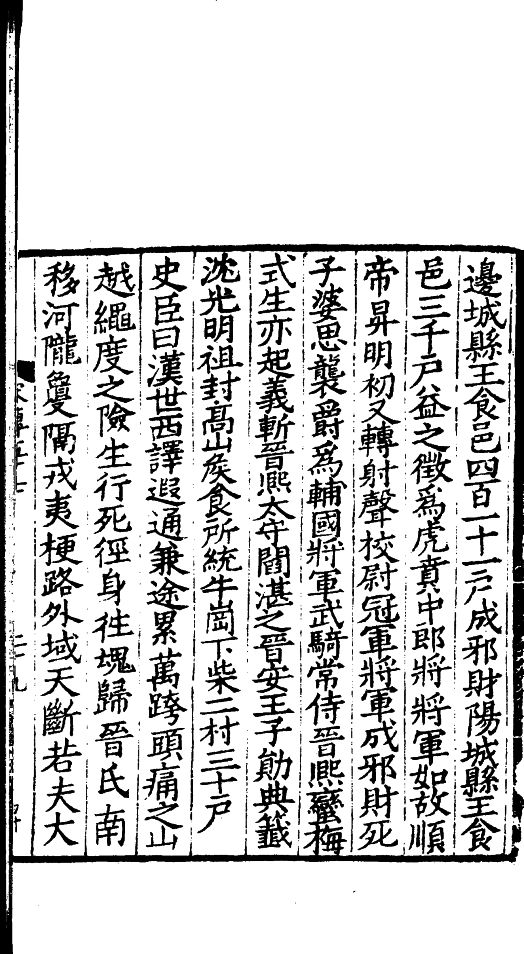 邊城縣王食邑四百一十一戶成邪財陽城縣王食
邑三千戶益之徵爲虎賁中郎將將軍如故順
帝昇明初又轉射聲校尉冠軍將軍成邪財死
子婆思襲爵爲輔國將軍武騎常侍晉熙蠻梅
式生亦起義斬晉熙太守閻湛之晉安王子勛典籤
沈光明祖封高山侯食所統牛崗下柴二村三十戶
史臣曰漢世西譯遐通兼途累萬跨頭痛之山
越繩度之險生行死徑身往魂歸晉氏南
移河隴敻隔戎夷梗路外域天斷若夫大